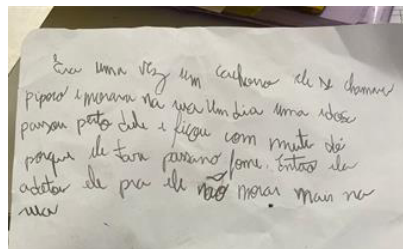 Era uma vez um cachorro ele se chamava
piporo e morava na rua Um dia uma idosa
pasou perto dele e ficou com muto dó
porque ele tava pasano fome. Então ela
adotou ele pra ele não morar mais na
rua